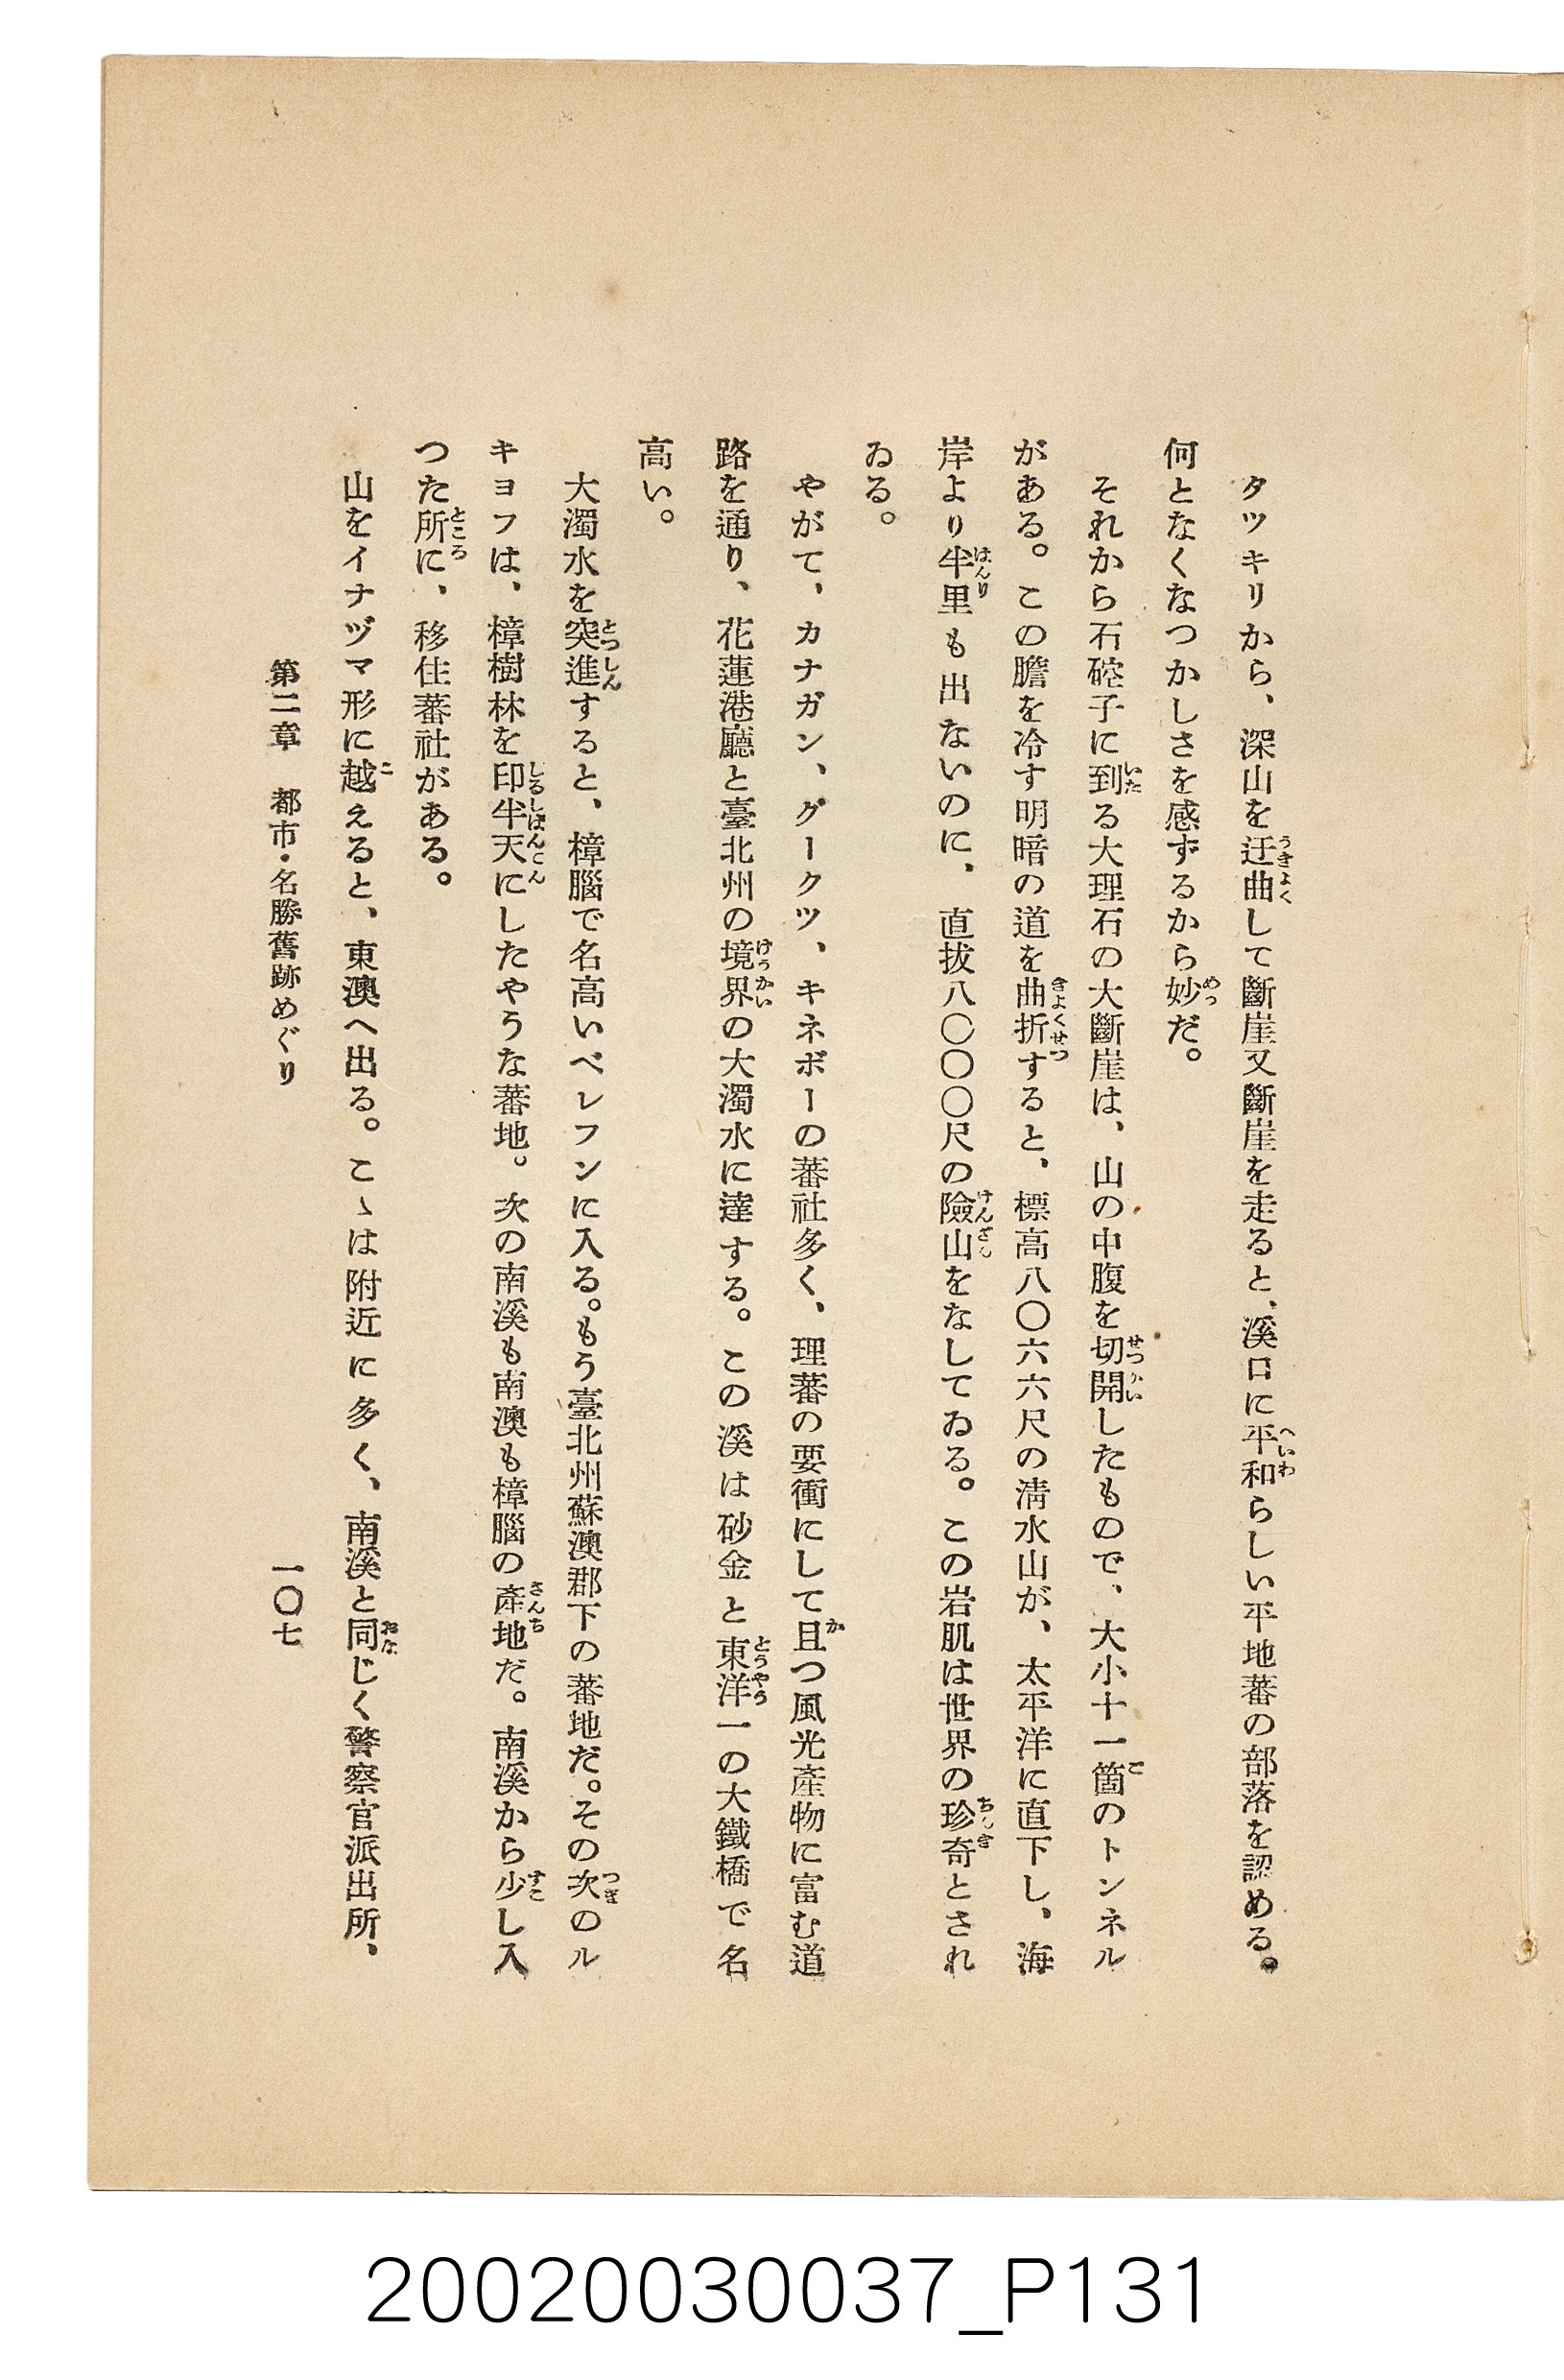 タツキリから、深山を迂曲して斷崖又斷崖を走ると、溪口に平和らしい平地蕃の部落を認める。
何となくなつかしさを感ずるから妙だ。
それから石硿子に到る大理石の大斷崖は、山の中腹を切開したもので、大小十一箇のトンネル
がある。この膽を冷す明暗の道を曲折すると、標高八〇六六尺の淸水山が、太平洋に直下し、海
岸より半里も出ないのに、直拔八〇〇〇尺の險山をなしてゐる。この岩肌は世界の珍奇とされ
ゐる。
やがて、カナガン、グークツ、キネボーの蕃社多く、理蕃の要衝にして且つ風光產物に富む道
路を通り、花蓮港廳と臺北州の境界の大濁水に達する。この溪は砂金と東洋一の大鐵橋で名
高い。
大濁水を突進すると、樟腦で名高いベレフンに入る。もう臺北州蘇澳郡下の蕃地だ。その次のル
キヨフは、樟樹林を印半天にしたやうな蕃地。次の南溪も南澳も樟腦の產地だ。南溪から少し入
つた所に、移住蕃社がある。
山をイナヅマ形に越えると、東澳へ出る。こゝは附近に多く、南溪と同じく警察官派出所、
第二章　都市・名勝舊跡めぐり　一〇七
20020030037_P131